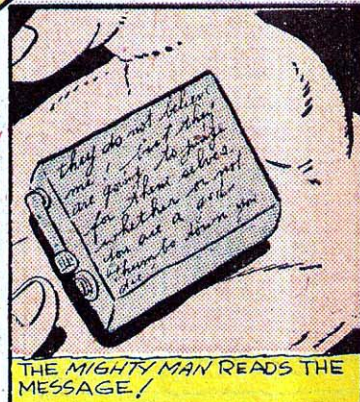 they do not believe
me, but they
are going to judge
for them selves.
whether or not
you are a god
thumbs down you
die
THE MIGHTY MAN READS THE
MESSAGE!